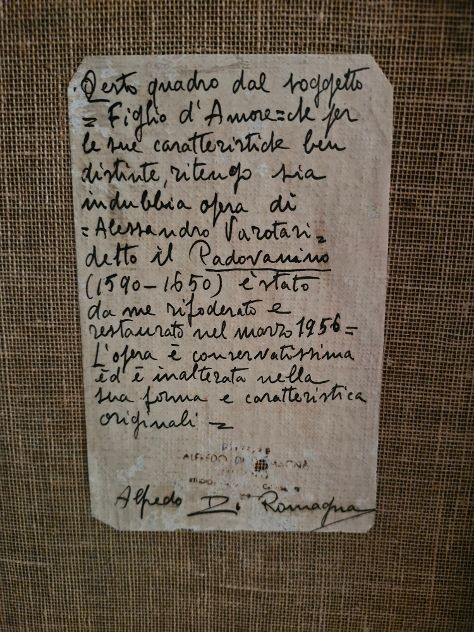 Qesto quadro dal soggetto
= Figlio d'Amore = che per
le sue caratteristiche ben
distinte, ritengo sia
indubbia opera di
= Alessandro Varotari =
detto il Padovanino
(1590-1650) è stato
da me rifoderato e
restaurato nel marzo 1956 =
L'opera è conservatissima
ed è inalterata nella
sua forma e caratteristica
originali =
ALFREDO DI ROMAGNA
Alfredo Di Romagna